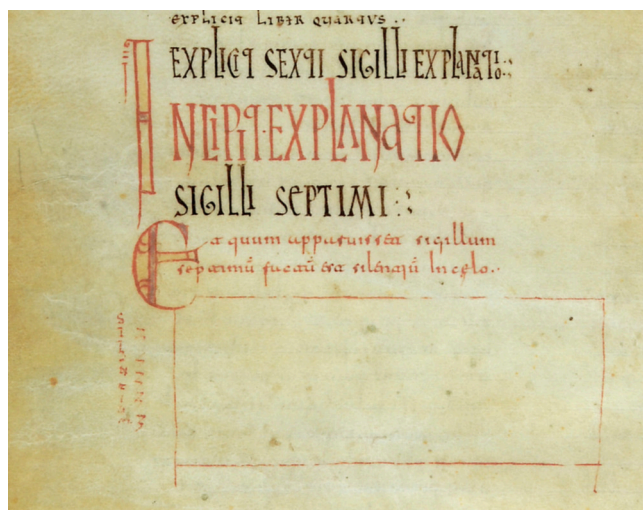 EXPLICIT LIBER QUARTUS
EXPLICIT SEXTI SIGILLI EXPLANATIO
INCIPIT EXPLANATIO
SIGILLI SEPTIMI
Et quum apparuisset sigillum
septimū factū est silentiū In celo